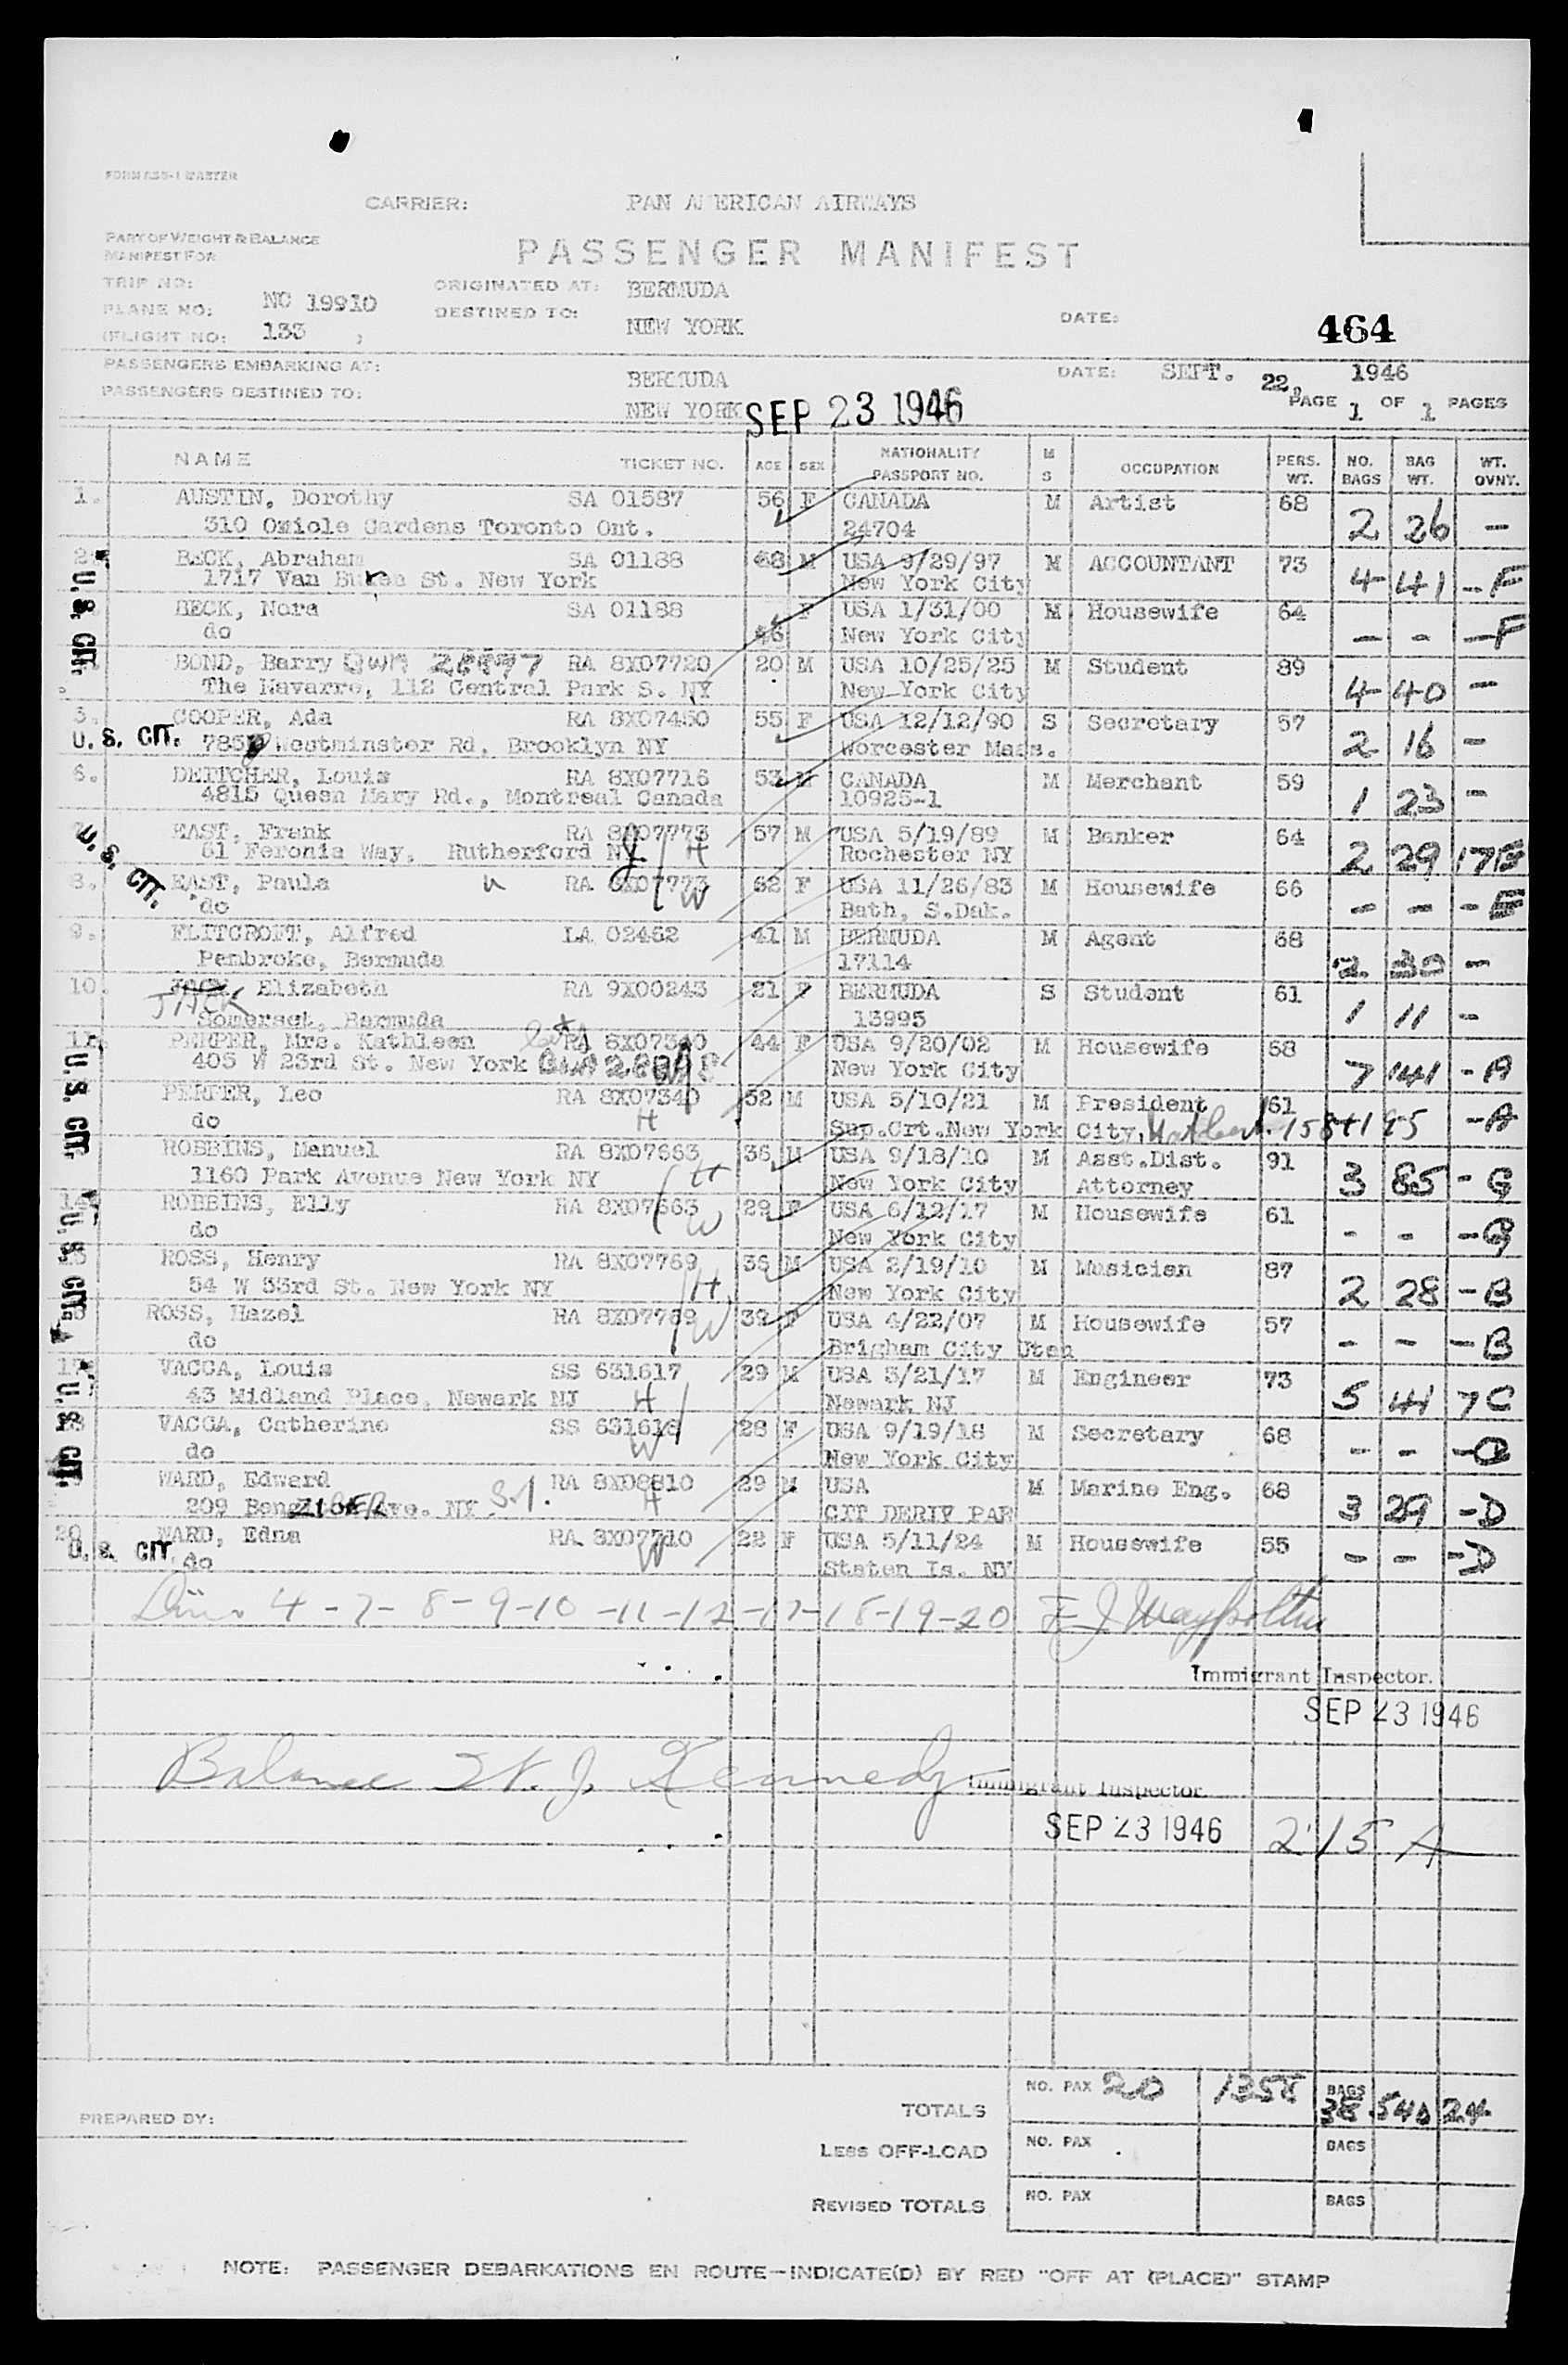 FORM 633-1 MASTER
CARRIER: PAN AMERICAN AIRWAYS
PART OF WEIGHT & BALANCE
MANIFEST FOR
PASSENGER MANIFEST
TRIP NO: ORIGINATED AT: BERMUDA
PLANE NO: NC 19910 DESTINED TO: NEW YORK DATE: 464
(FLIGHT NO: 133 )
PASSENGERS EMBARKING AT: BERMUDA DATE: SEPT. 22, 1946
PASSENGERS DESTINED TO: NEW YORK SEP 23 1946 PAGE 1 OF 1 PAGES
NAME TICKET NO. AGE SEX NATIONALITY PASSPORT NO. M S OCCUPATION PERS. WT. NO. BAGS BAG WT. WT. OVNY.
1. AUSTIN, Dorothy SA 01587 56 F CANADA M Artist 68 2 26 -
310 Omiole Gardens Toronto Ont. 24704
2. BECK, Abraham SA 01188 48 M USA 9/29/97 M ACCOUNTANT 73 4 41 - F
1717 Van Buren St. New York New York City
U.S. CIT.
BECK, Nora SA 01188 46 F USA 1/31/00 M Housewife 64 - - - F
do New York City
BOND, Barry RA 8X07720 20 M USA 10/25/25 M Student 89 4 40 -
The Navarro, 112 Central Park S. NY New York City
5. COOPER, Ada RA 8X07450 55 F USA 12/12/90 S Secretary 57 2 16 -
U.S. CIT. 785 Westminster Rd. Brooklyn NY Worcester Mass.
6. DEITCHER, Louis RA 8X07716 53 M CANADA M Merchant 59 1 23 -
4815 Queen Mary Rd., Montreal Canada 10925-1
7. EAST, Frank RA 8X07773 H 57 M USA 5/19/89 M Banker 64 2 29 17 E
61 Feronia Way, Rutherford NJ Rochester NY
U.S. CIT.
8. EAST, Paula RA 8X07773 W 62 F USA 11/26/83 M Housewife 66 - - - E
do Bath, S.Dak.
9. FLITCROFT, Alfred LA 02462 41 M BERMUDA M Agent 68 2 30 -
Pembroke, Bermuda 17114
10. JACK Elizabeth RA 9X00243 21 F BERMUDA S Student 61 1 11 -
Somerset, Bermuda 13995
11. PERPER, Mrs. Kathleen RA 8X07340 44 F USA 9/20/02 M Housewife 58 7 141 - A
405 W 23rd St. New York New York City
U.S. CIT.
PERPER, Leo RA 8X07340 H 52 M USA 5/10/21 M President 61 - A
do Sup.Crt.New York City,
ROBBINS, Manuel RA 8X07663 H 36 M USA 9/18/10 M Asst.Dist. 91 3 85 - G
1160 Park Avenue New York NY New York City Attorney
14. ROBBINS, Elly RA 8X07663 W 29 F USA 6/12/17 M Housewife 61 - - - G
do New York City
U.S. CIT.
15 ROSS, Henry RA 8X07769 H 36 M USA 2/19/10 M Musician 87 2 28 - B
54 W 53rd St. New York NY New York City
ROSS, Hazel RA 8X07769 W 39 F USA 4/22/07 M Housewife 57 - - - B
do Brigham City Utah
17 VACCA, Louis SS 631617 H 29 M USA 3/21/17 M Engineer 73 5 41 7 C
43 Midland Place, Newark NJ Newark NJ
U.S. CIT.
VACCA, Catherine SS 631618 W 28 F USA 9/19/18 M Secretary 68 - - - C
do New York City
WARD, Edward RA 8X08810 H 29 M USA M Marine Eng. 68 3 29 - D
209 Ave. NY S.I. CIT DERIV PAR
20 WARD, Edna RA 8X07710 W 22 F USA 5/11/24 M Housewife 55 - - - D
U.S. CIT. do Staten Is. NY
4-7-8-9-10-11-12-17-18-19-20
Immigrant Inspector.
SEP 23 1946
Balance W. J. Kennedy Immigrant Inspector.
SEP 23 1946 215 A
TOTALS NO. PAX 20 1358 BAGS 38 540 24
PREPARED BY:
LESS OFF-LOAD NO. PAX BAGS
REVISED TOTALS NO. PAX BAGS
NOTE: PASSENGER DEBARKATIONS EN ROUTE—INDICATE(D) BY RED "OFF AT (PLACE)" STAMP